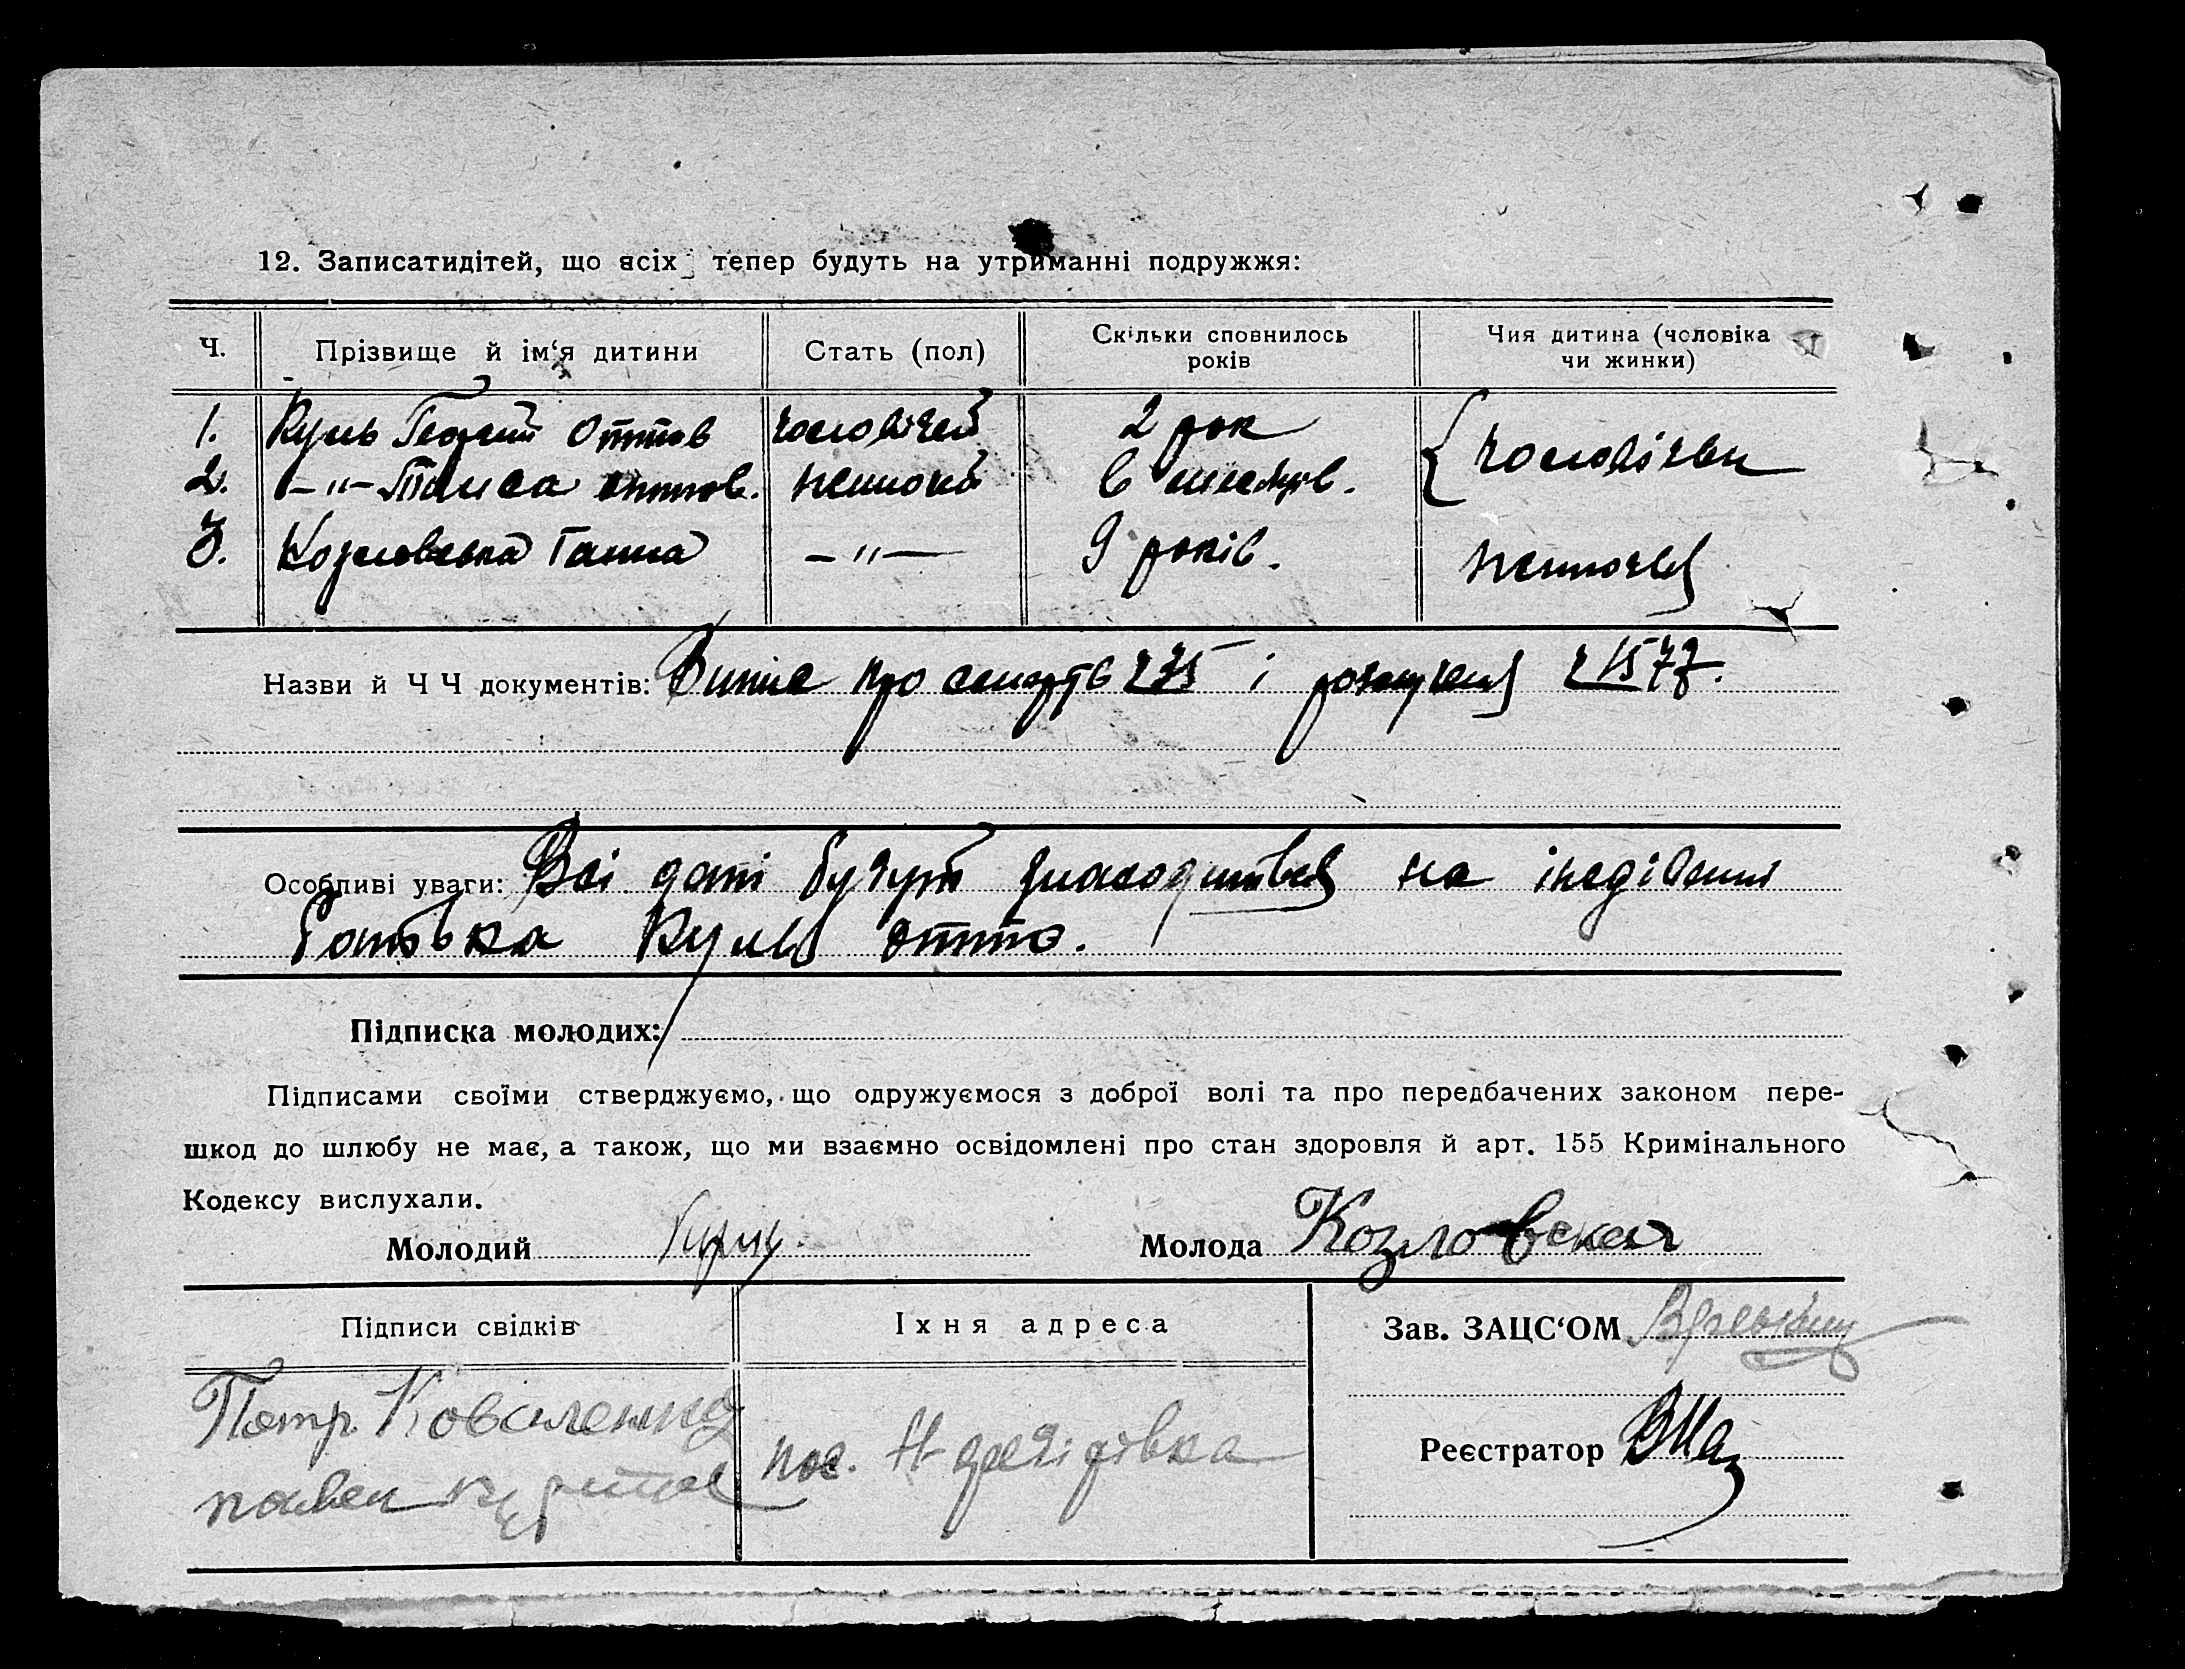 12. Записатидітей, що всіх тепер будуть на утриманні подружжя:
Ч. Прізвище й ім‘я дитини Стать (пол) Скільки сповнилось років Чия дитина (чоловіка чи жинки)
1. Кунь Георгий Оттов чоловічей 2 рок чоловічи
2. —„— Таиса Оттов. женской 6 месяців.
3. Козловська Ганна —„— 9 років. женочея
Назви й Ч Ч документів: Випис про смерть Ч 75 і розлучення Ч 1577.
Особливі уваги: Всі дати будуть знаходиться на іждівении
батька Кунь Отто.
Підписка молодих:
Підписами своїми стверджуємо, що одружуємося з доброї волі та про передбачених законом пере-
шкод до шлюбу не має, а також, що ми взаємно освідомлені про стан здоровля й арт. 155 Кримінального
Кодексу вислухали.
Молодий Молода Козловская
Підписи свідків Їхня адреса Зав. ЗАЦС‘ОМ
Петр Коваленко
пос.
Реєстратор
Павел